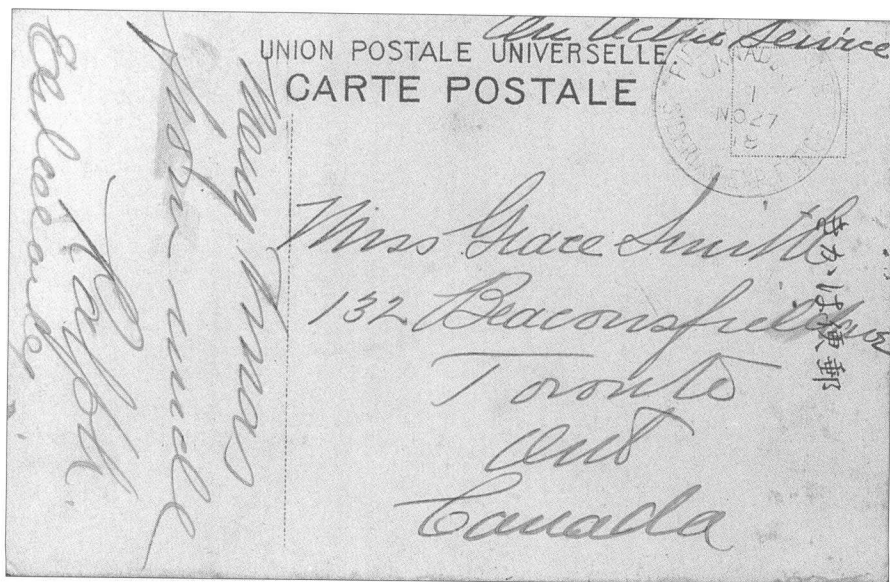 On Active Service
UNION POSTALE UNIVERSELLE.
CARTE POSTALE
CANADA
1
NO 27
8
SIBERIAN
Miss Grace Smith
132 Beaconsfield ave
Toronto
Ont
Canada
きがは便郵
Merry Xmas
from uncle
Ralph.